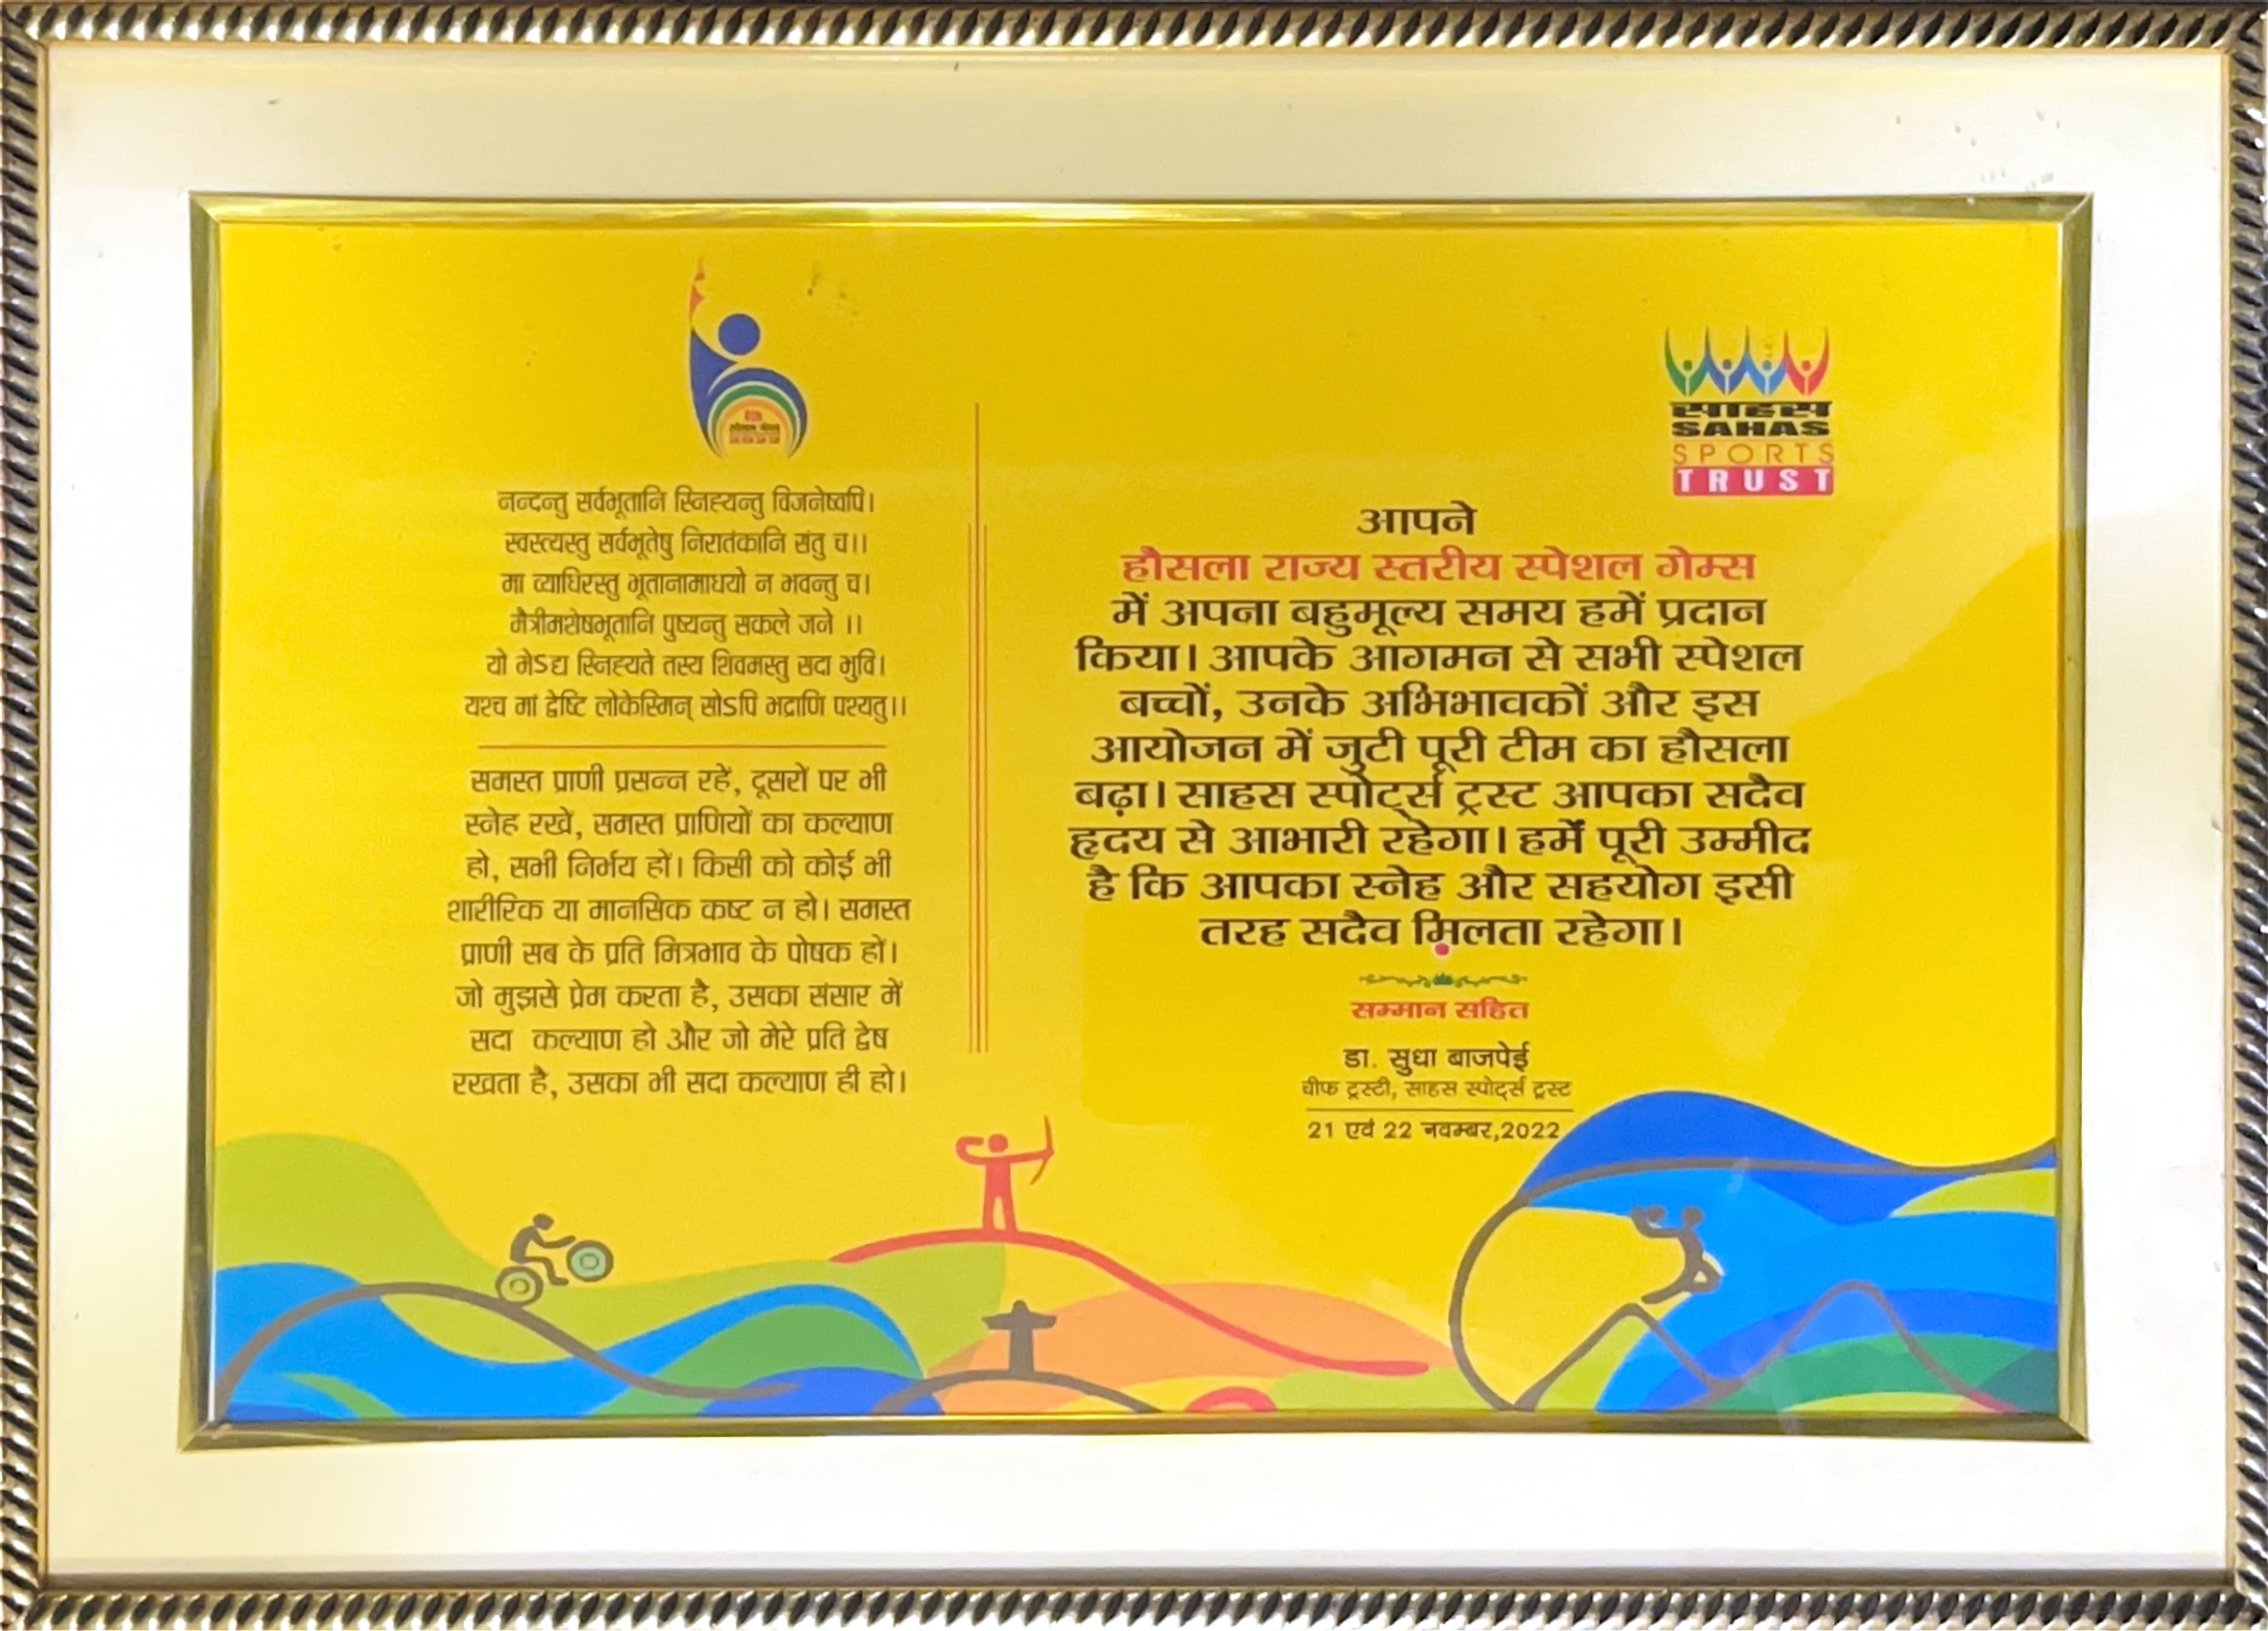 नन्दन्तु सर्वभूतानि स्निह्यन्तु विजनेष्वपि।
स्वस्त्यस्तु सर्वभूतेषु निरातंकानि संतु च।।
मा व्याधिरस्तु भूतानामाधयो न भवन्तु च।
मैत्रीमशेषभूतानि पुष्यन्तु सकले जने ।।
यो मेऽद्य स्निह्यते तस्य शिवमस्तु सदा भुवि।
यश्च मां द्वेष्टि लोकेस्मिन् सोऽपि भद्राणि पश्यतु।।
समस्त प्राणी प्रसन्न रहें, दूसरों पर भी
स्नेह रखें, समस्त प्राणियों का कल्याण
हो, सभी निर्भय हों। किसी को कोई भी
शारीरिक या मानसिक कष्ट न हो। समस्त
प्राणी सब के प्रति मित्रभाव के पोषक हों।
जो मुझसे प्रेम करता है, उसका संसार में
सदा कल्याण हो और जो मेरे प्रति द्वेष
रखता है, उसका भी सदा कल्याण ही हो।
साहस
SAHAS
SPORTS
TRUST
आपने
हौसला राज्य स्तरीय स्पेशल गेम्स
में अपना बहुमूल्य समय हमें प्रदान
किया। आपके आगमन से सभी स्पेशल
बच्चों, उनके अभिभावकों और इस
आयोजन में जुटी पूरी टीम का हौसला
बढ़ा। साहस स्पोर्ट्स ट्रस्ट आपका सदैव
हृदय से आभारी रहेगा। हमें पूरी उम्मीद
है कि आपका स्नेह और सहयोग इसी
तरह सदैव मिलता रहेगा।
सम्मान सहित
डा. सुधा बाजपेई
चीफ ट्रस्टी, साहस स्पोर्ट्स ट्रस्ट
21 एवं 22 नवम्बर,2022